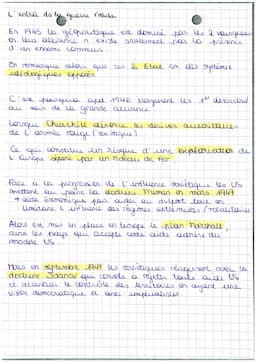 L'entrée de la guerre froide
En 1945 la géopolitique est dominé par les 2 vainqueurs
or leur alliance n'existe seulement par la présence
d'un ennemi commun
On remarque alors que ces 2 Etat on des systèmes
idéologiques opposés
C'est pourquoi apd 1946 surgissent les 1er désaccord
au sein de la grande alliance !
Lorsque Churchill dénonce les dérives autoritaires
de l'armée rouge (soviétique)
Ce qui constitue un risque d'une bipolarisation de
l'Europe séparé par un rideau de fer.
Face à la progression de l'influence soviétique les US
mettent au point la doctrine Truman en mars 1947
→ aide économique pour aider au dvlpmt tout en
limitant l'influence des régimes extrêmistes / totalitaires
Alors est mis en place en Europe le plan Marshall,
dans les pays qui accepte cette aide adhère au
modèle US
Mais en septembre 1947 les soviétiques réagissent avec la
doctrine Jdanov qui consiste à rejeter toute aide US
et accentuer le contrôle des territoires en ayant une
visée démocratique et anti impérialistes